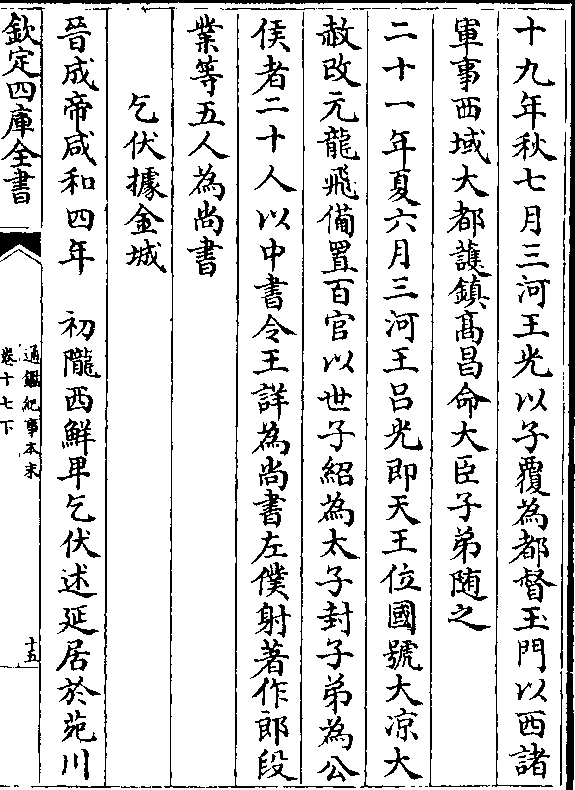 十九年秋七月三河王光以子覆為都督玉門以西諸
軍事西域大都護鎮髙昌命大臣子弟随之
二十一年夏六月三河王吕光即天王位國號大凉大
赦改元龍飛備置百官以世子紹為太子封子弟為公
侯者二十人以中書令王詳為尚書左僕射著作郎段
業等五人為尚書
乞伏據金城
晉成帝咸和四年　初隴西鮮卑乞伏述延居於苑川
欽定四庫全書
通鑑紀事本末
卷十七下
十五